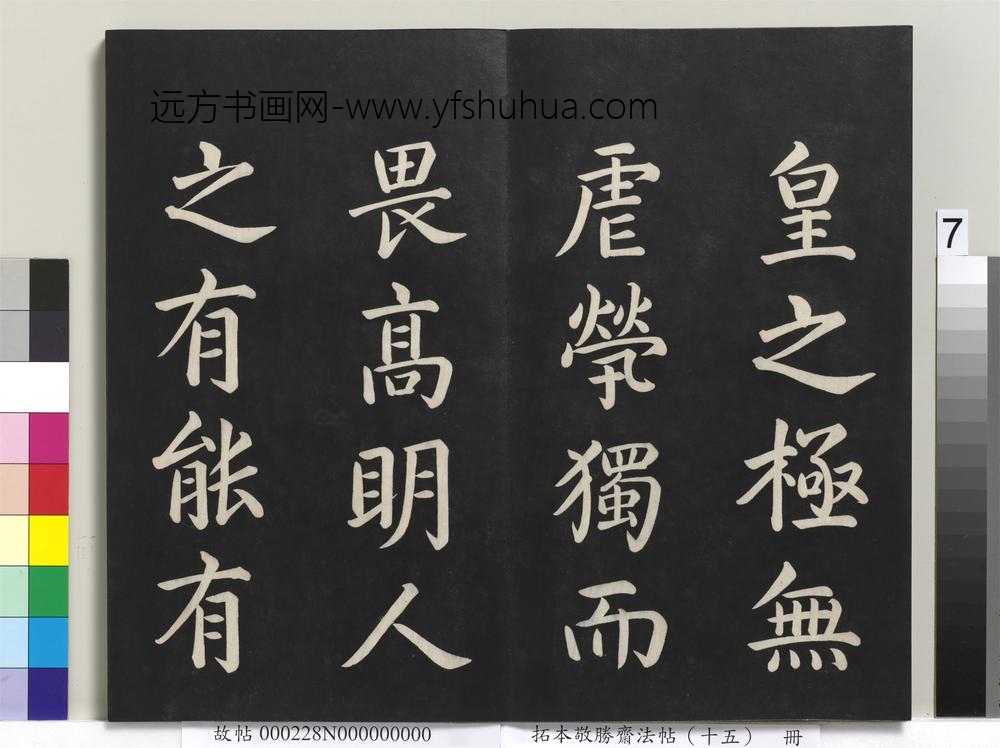 远方书画网-www.yfshuhua.com
皇之極無
虐煢獨而
畏高明人
之有能有
7
故帖 000228N000000000
拓本敬勝齋法帖（十五） 冊